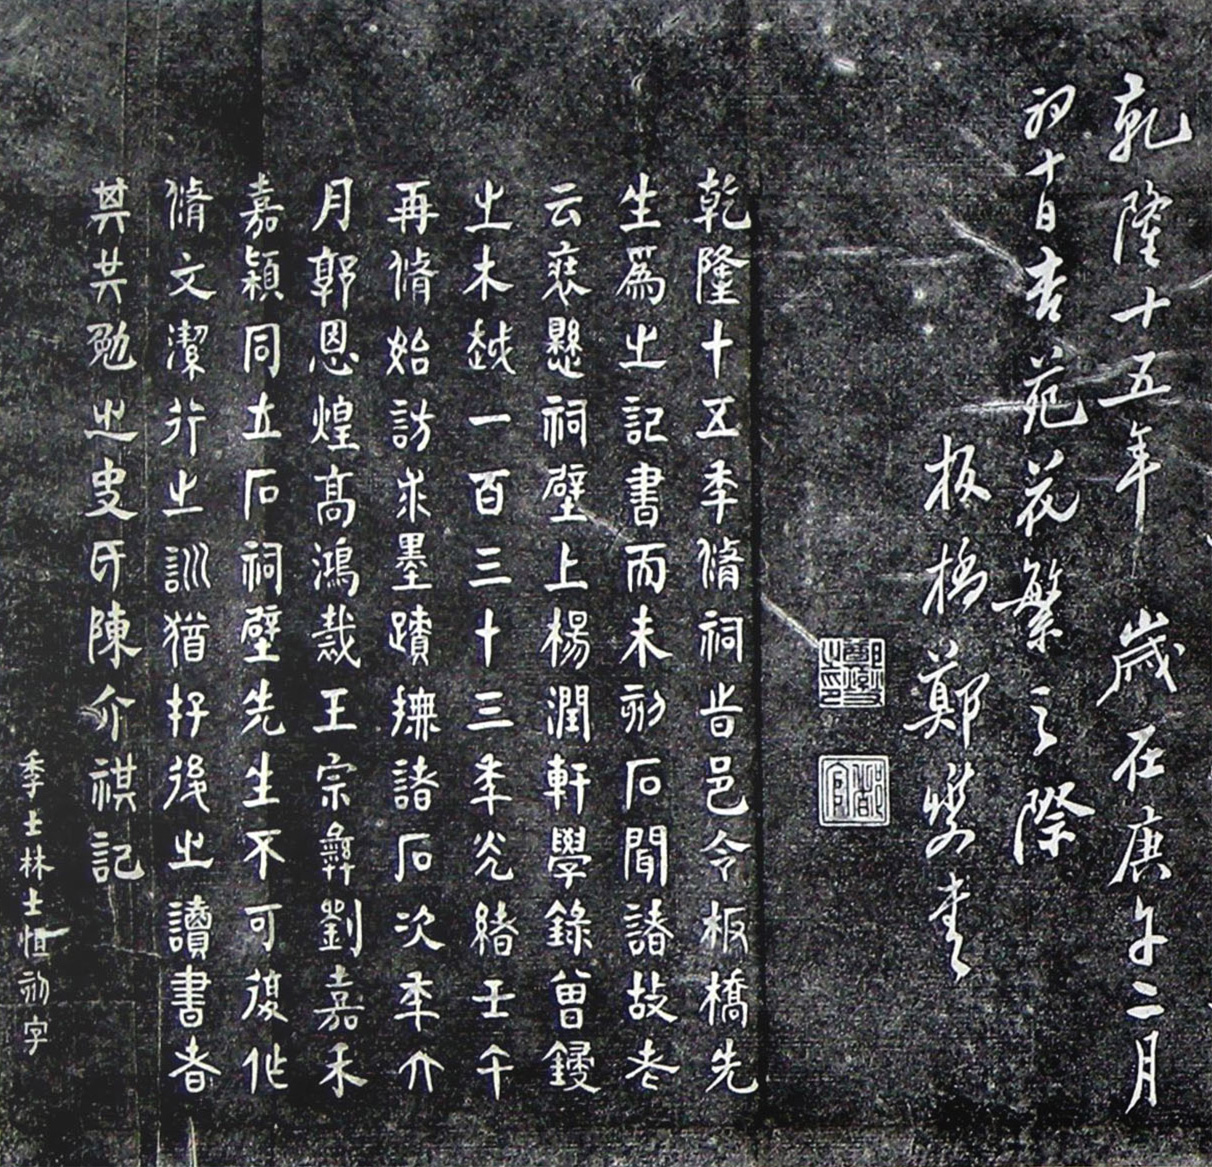 乾隆十五年歲在庚午二月
初十日杏苑花繁之際
板橋鄭燮書
鄭燮之印
乾隆十五季脩祠旹邑令板橋先
生爲㞢記書而未刻石聞諸故老
云裝懸祠壁上楊潤軒學錄曾鋟
㞢木越一百三十三季光緒壬午
再脩始訪求墨蹟橅諸石次季六
月郭恩煌高鴻裁王宗彝劉嘉禾
嘉穎同立石祠壁先生不可復作
脩文潔行㞢訓猶存後㞢讀書者
其共勉㞢史氏陳介祺記
季士林士恒刻字